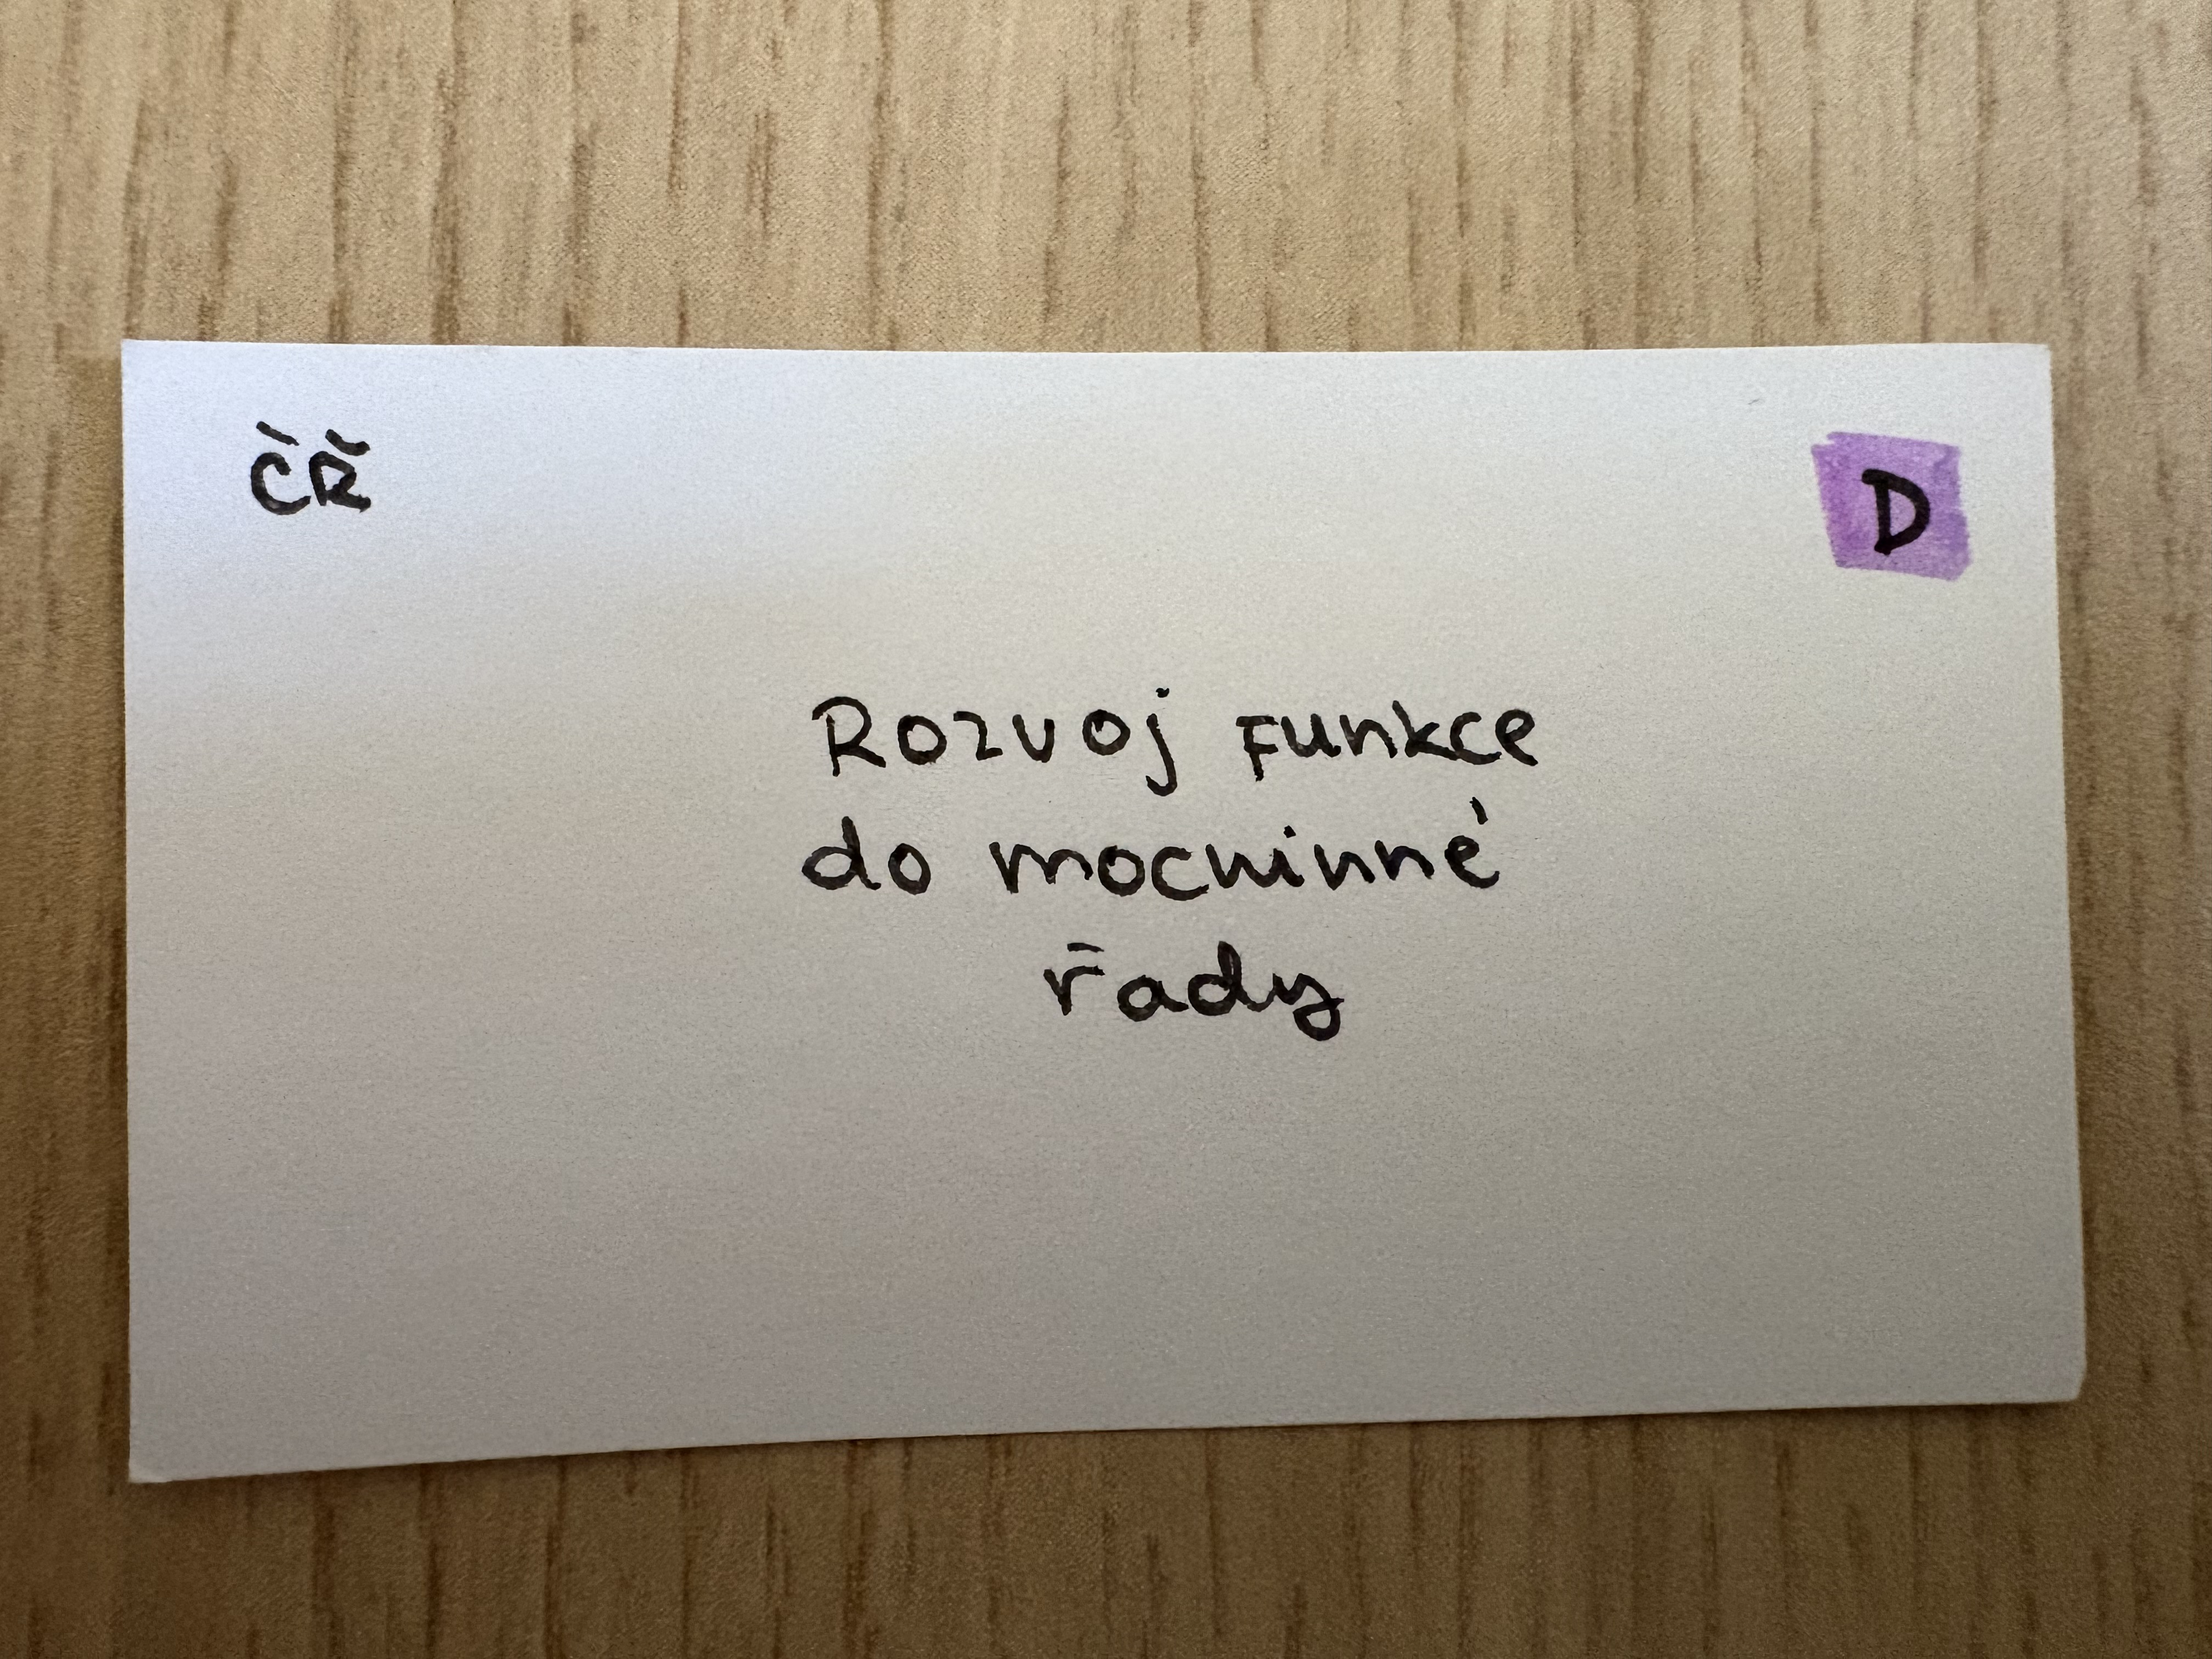 ČŘ
D
Rozvoj funkce
do mocninné
řady